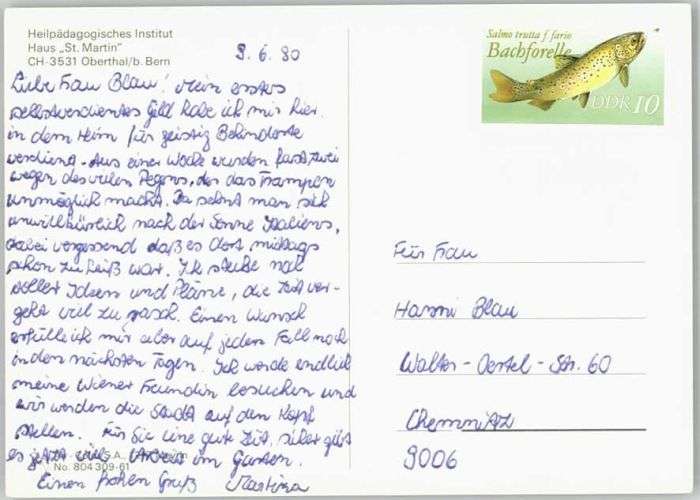 Heilpädagogisches Institut
Haus „St. Martin"
CH-3531 Oberthal/b. Bern
9. 6. 90
Liebe Frau Blau! Mein erstes
selbstverdientes Geld habe ich mir hier
in dem Heim für geistig Behinderte
verdient. Aus einer Woche wurden fast zwei
wegen des vielen Regens, der das Trampen
unmöglich macht. Da sehnt man sich
unwillkürlich nach der Sonne Italiens,
dabei vergessend daß es dort mittags
schon zu heiß war. Ich stecke noch
voller Ideen und Pläne, die Zeit ver-
geht viel zu rasch. Einen Wunsch
erfülle ich mir aber auf jeden Fall noch
in den nächsten Tagen. Ich werde endlich
meine Wiener Freundin besuchen und
wir werden die Stadt auf den Kopf
stellen. Für Sie eine gute Zeit, sicher gibt
es jetzt viel Arbeit im Garten.
No. 804 309-61
Einen frohen Gruß Martina
Salmo trutta f. fario
Bachforelle
DDR 10
Für Frau
Hanni Blau
Walter-Oertel-Str. 60
Chemnitz
9006